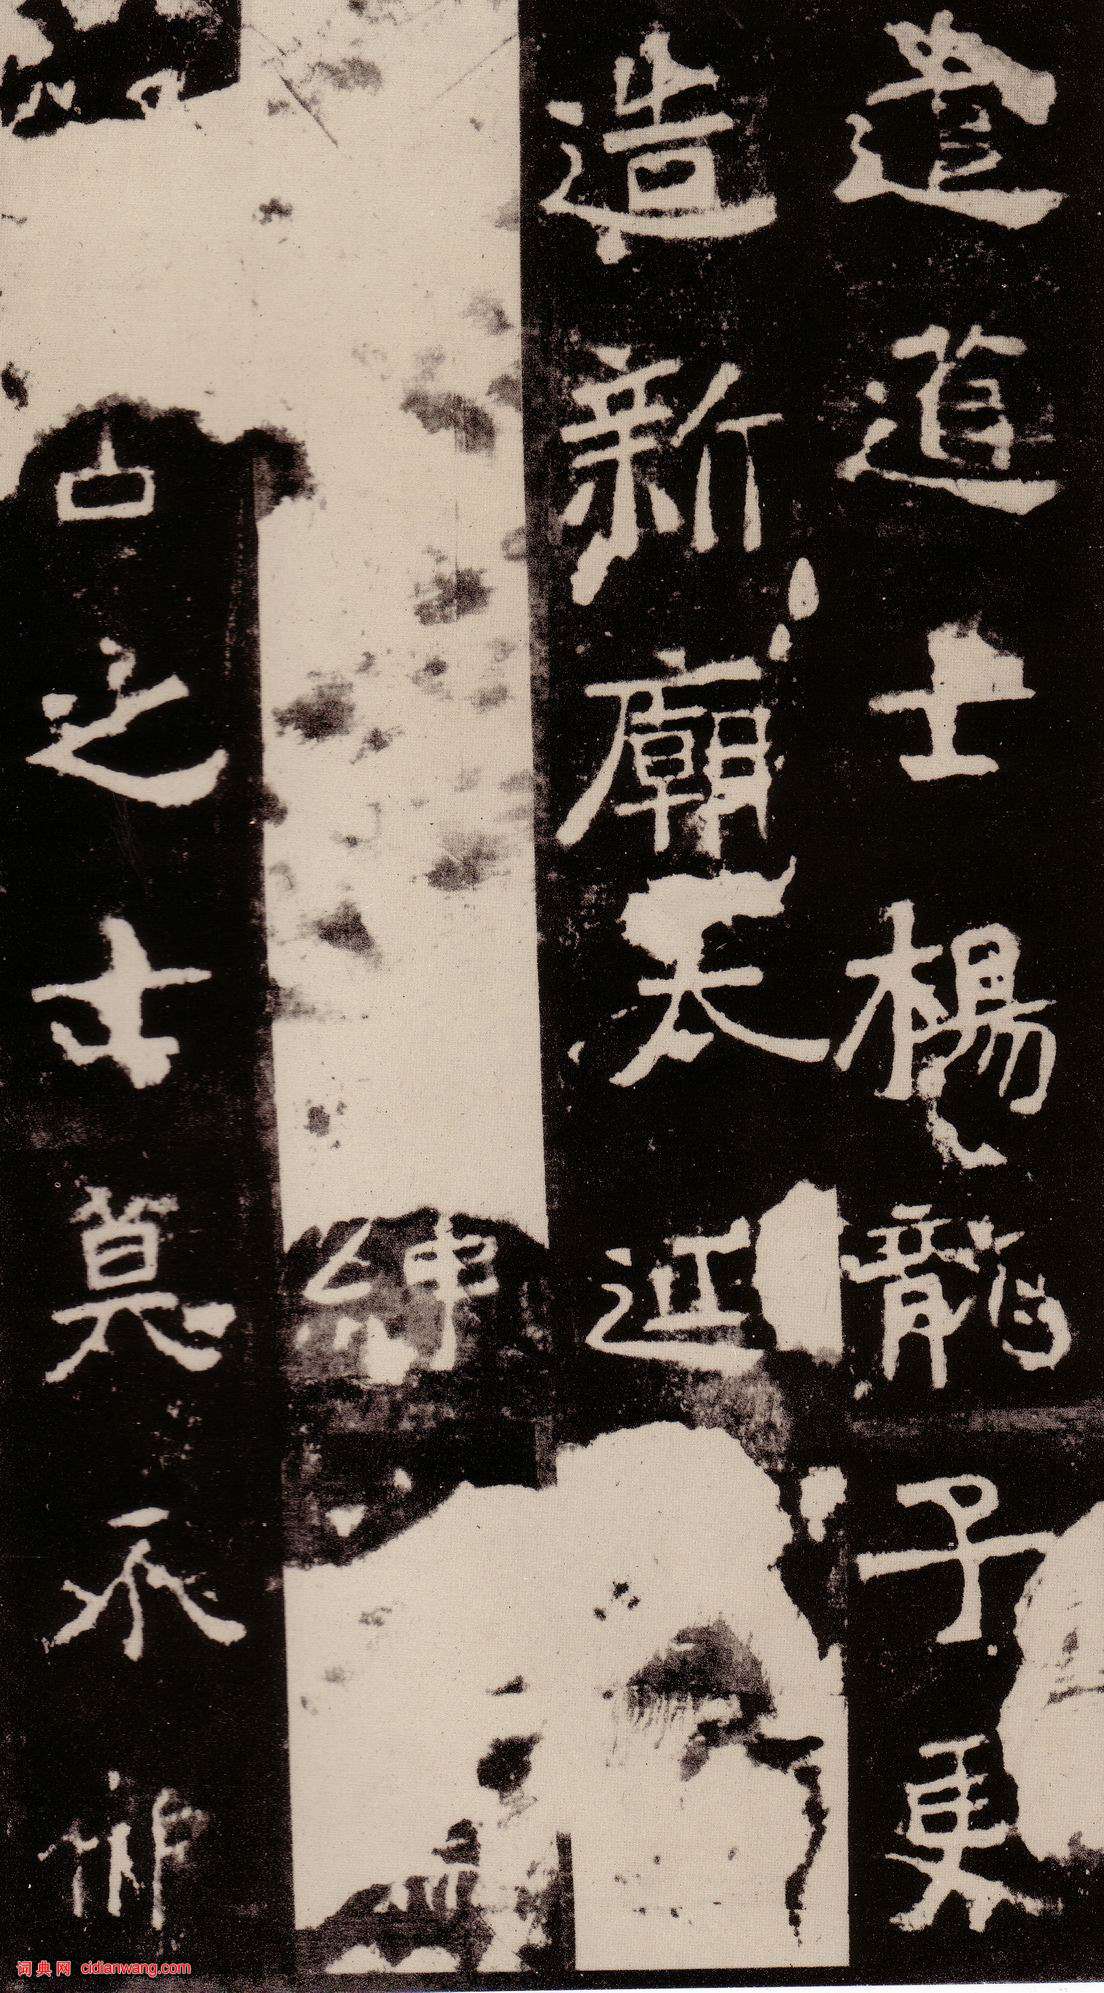 遣道士楊龍子更
造新廟太近
紳
占之士莫不
词典网 cidianwang.com